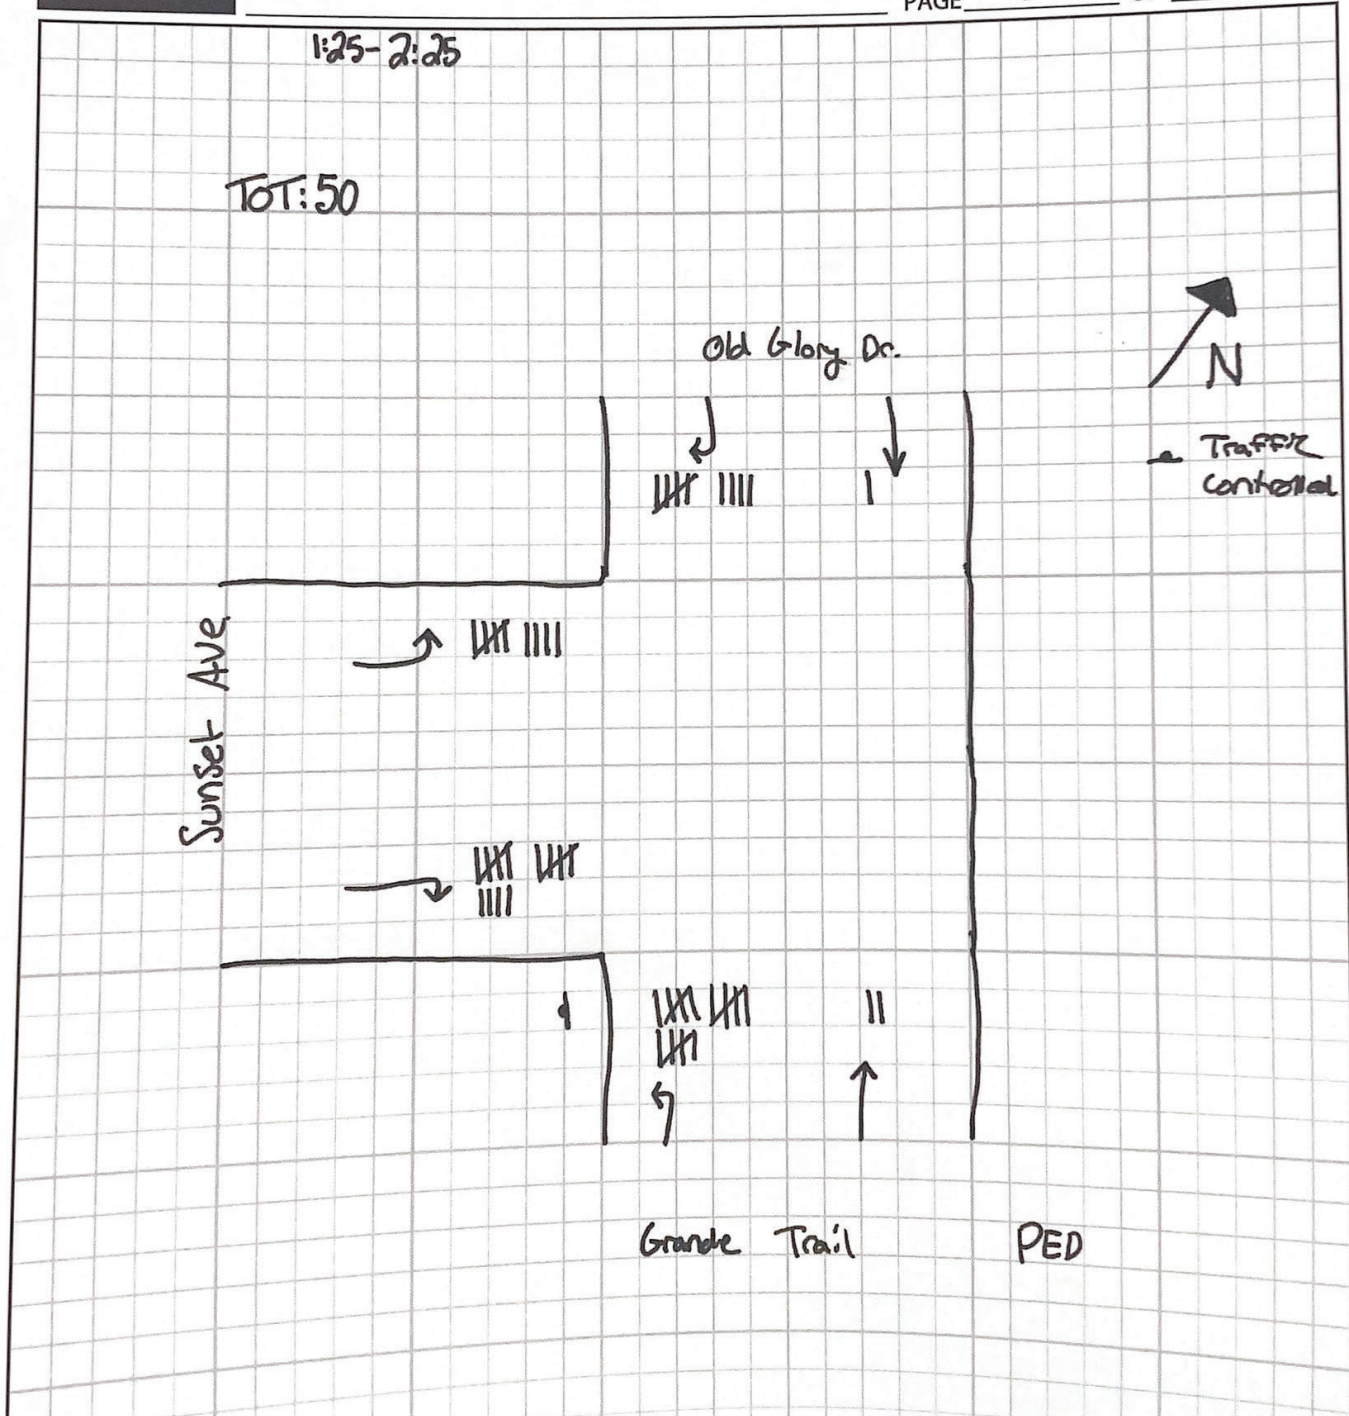 PAGE
1:25-2:25
TOT: 50
Old Glory Dr.
N
Traffic
Controlled
Sunset Ave.
Grande Trail
PED